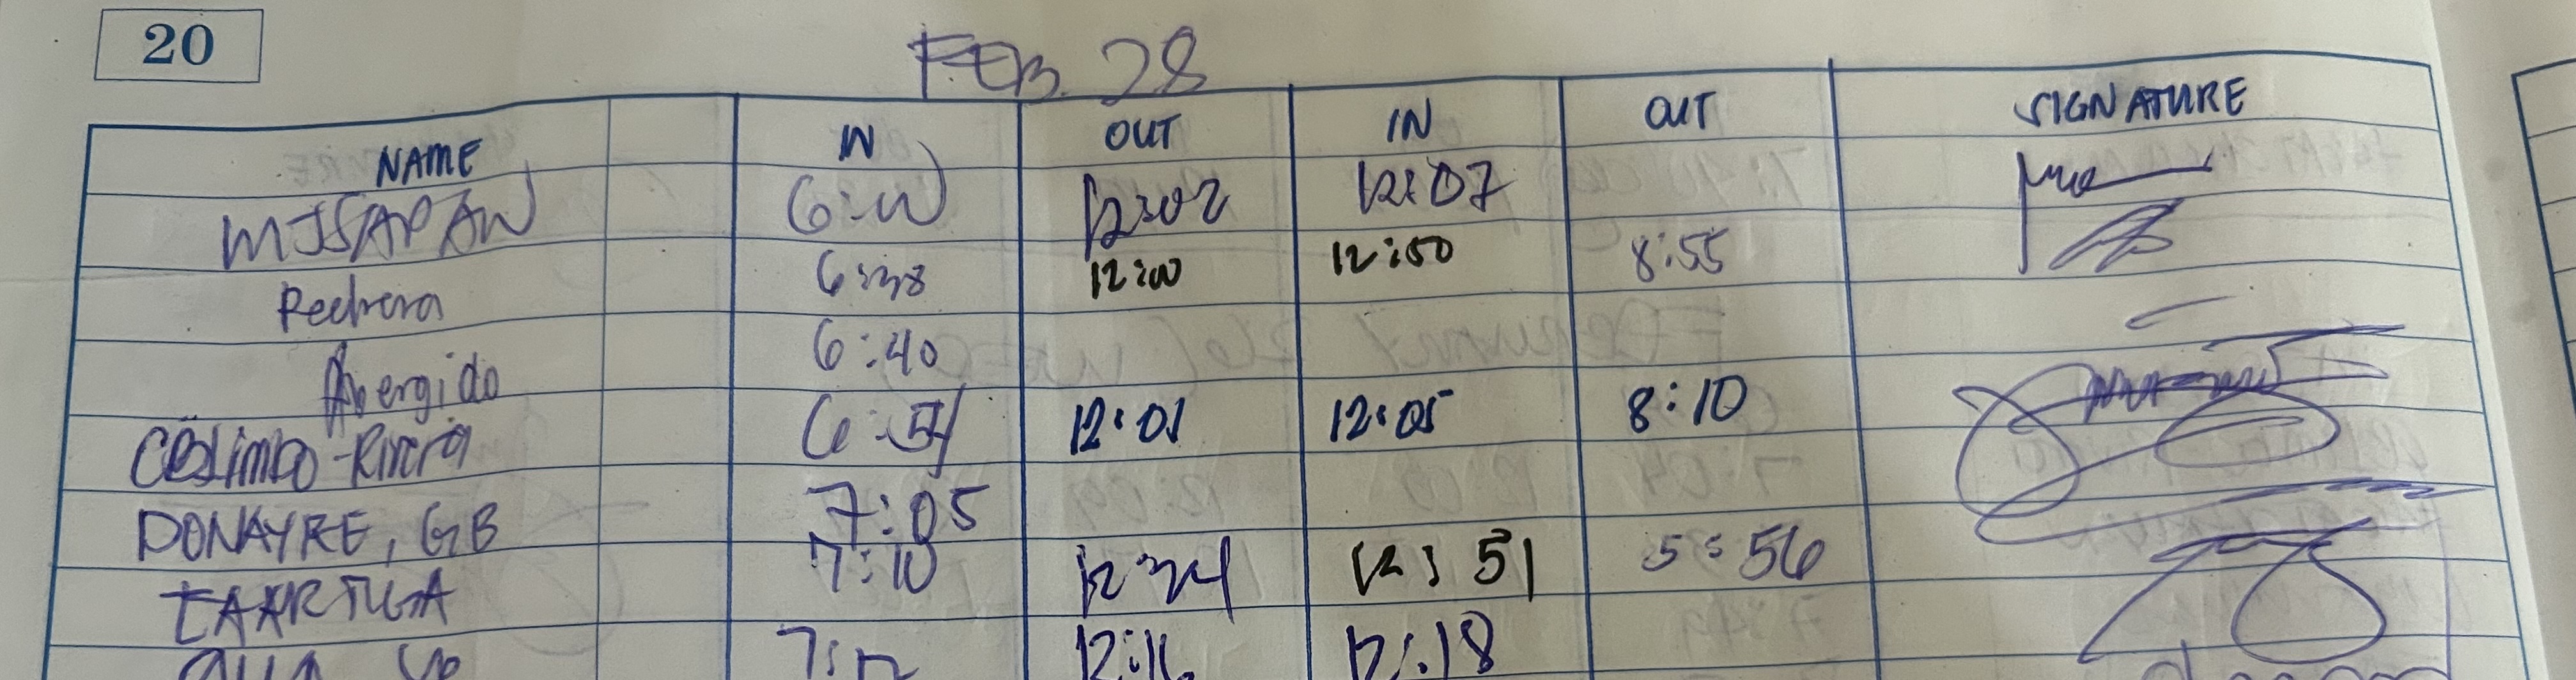 20
FEB. 28
NAME IN OUT IN OUT SIGNATURE
MJSAPAN 6:00 12:02 12:07
Pechera 6:38 12:00 12:50 8:55
Abergido 6:40
CBLimbo-Rivera 6:54 12:01 12:05 8:10
DONAYRE, GB 7:05
EAARTIGA 7:10 12:34 12:51 5:56
7:12 12:16 12:18